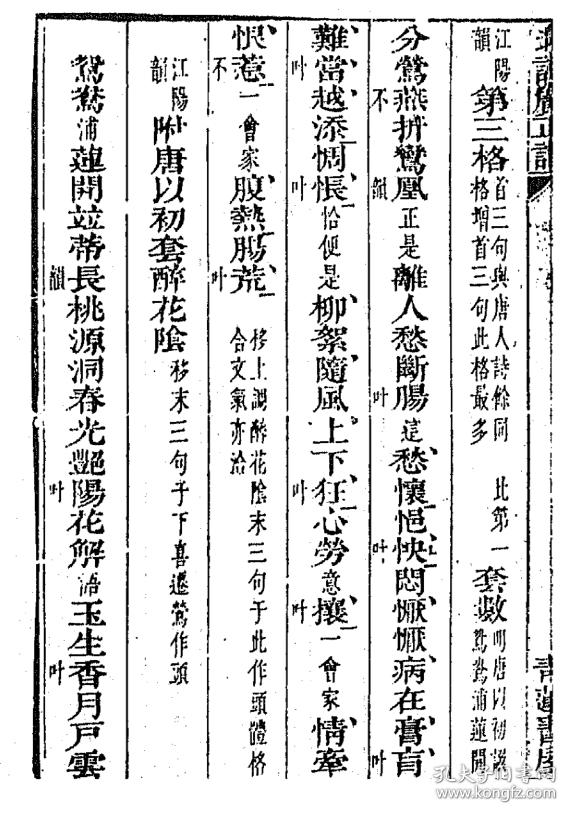 江陽韻 第三格 首三句與唐人詩餘同 比第一格增首三句此格最多 套數 明唐以初 鴛鴦浦蓮開
分鶯燕拆鸞凰不韻正是離人愁斷腸叶這愁懷悒怏叶悶懨懨病在膏肓叶
難當叶越添惆悵叶恰便是柳絮隨風上下狂叶心勞意攘叶一會家情牽
恨惹不一會家腹熱腸荒叶 移上調醉花陰末三句于此作頭體格合文氣亦洽
江陽韻 附唐以初套醉花陰 移末三句于下喜遷鶯作頭
鴛鴦浦蓮開並蒂長韻桃源洞春光艷陽叶花解語玉生香叶月戶雲
孔夫子旧书网
www.kongfz.com